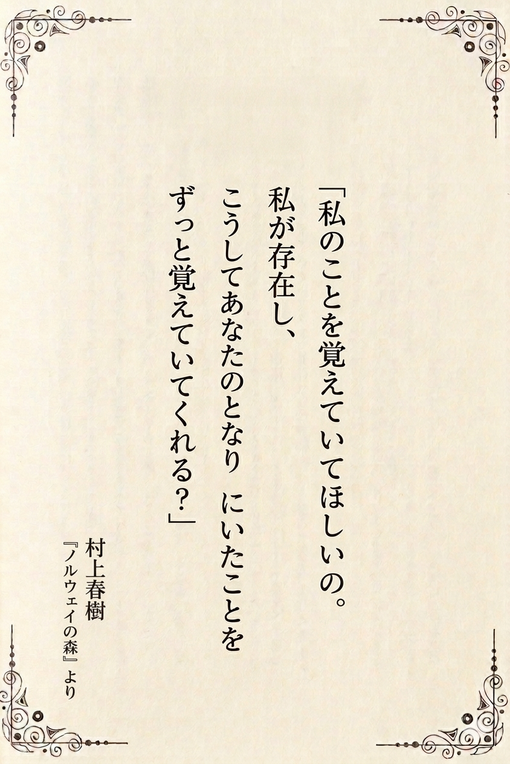 「私のことを覚えていてほしいの。
私が存在し、
こうしてあなたのとなり にいたことを
ずっと覚えていてくれる？」
村上春樹
『ノルウェイの森』より